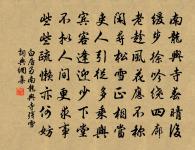 南龍興寺春晴後
緩步徐吟繞四廊
老趁風花應不稱
閑尋松雪正相當
吏人引從多乘輿
賓客逢迎少下堂
不擬人間更求事
些些疏懶亦何妨
白居易南龍興寺殘雪
詞典網集